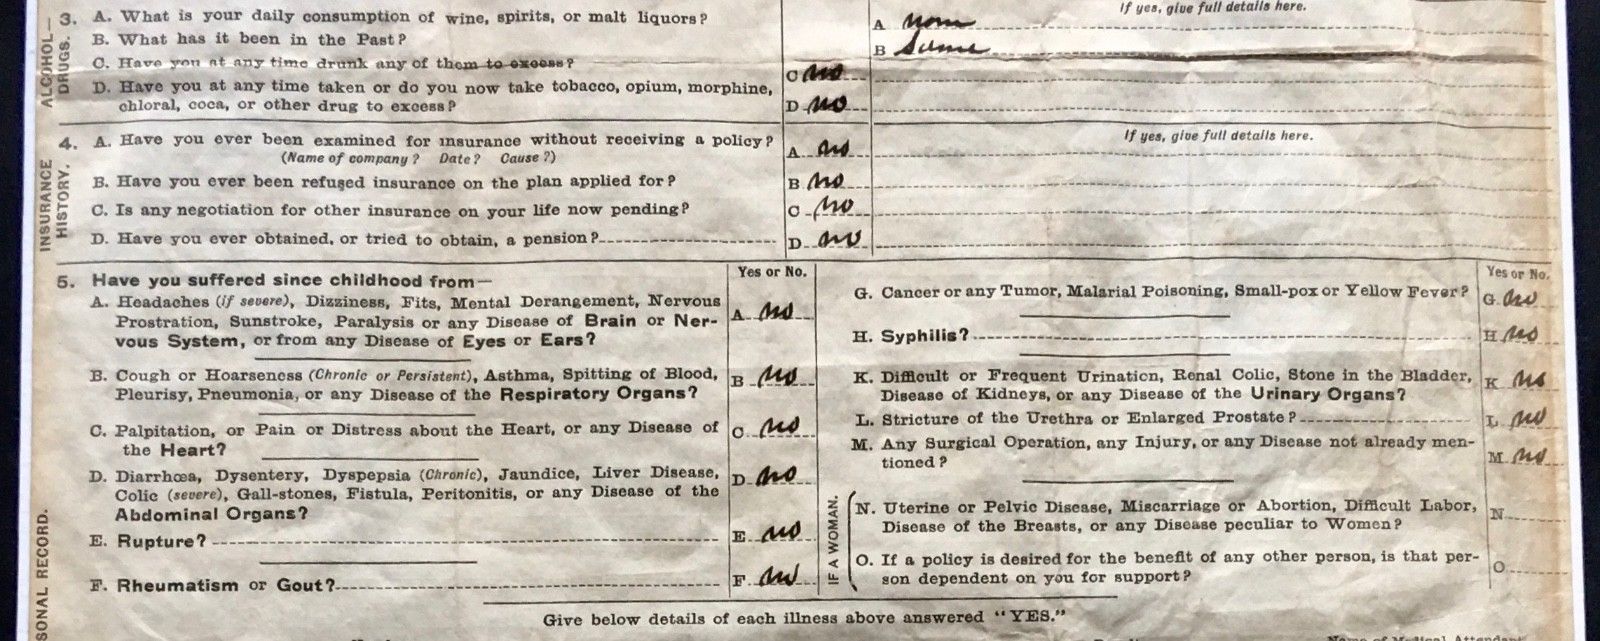 If yes, give full details here.
ALCOHOL—DRUGS.
3. A. What is your daily consumption of wine, spirits, or malt liquors? A none
B. What has it been in the Past? B Same
C. Have you at any time drunk any of them to excess? C no
D. Have you at any time taken or do you now take tobacco, opium, morphine,
chloral, coca, or other drug to excess? D no
INSURANCE HISTORY.
4. A. Have you ever been examined for insurance without receiving a policy? A no
If yes, give full details here.
(Name of company? Date? Cause?)
B. Have you ever been refused insurance on the plan applied for? B no
C. Is any negotiation for other insurance on your life now pending? C no
D. Have you ever obtained, or tried to obtain, a pension? D no
SONAL RECORD.
5. Have you suffered since childhood from—
Yes or No.
A. Headaches (if severe), Dizziness, Fits, Mental Derangement, Nervous
Prostration, Sunstroke, Paralysis or any Disease of Brain or Ner-
vous System, or from any Disease of Eyes or Ears? A no
B. Cough or Hoarseness (Chronic or Persistent), Asthma, Spitting of Blood,
Pleurisy, Pneumonia, or any Disease of the Respiratory Organs? B no
C. Palpitation, or Pain or Distress about the Heart, or any Disease of
the Heart? C no
D. Diarrhœa, Dysentery, Dyspepsia (Chronic), Jaundice, Liver Disease,
Colic (severe), Gall-stones, Fistula, Peritonitis, or any Disease of the
Abdominal Organs? D no
E. Rupture? E no
F. Rheumatism or Gout? F no
Yes or No.
G. Cancer or any Tumor, Malarial Poisoning, Small-pox or Yellow Fever? G no
H. Syphilis? H no
K. Difficult or Frequent Urination, Renal Colic, Stone in the Bladder,
Disease of Kidneys, or any Disease of the Urinary Organs? K no
L. Stricture of the Urethra or Enlarged Prostate? L no
M. Any Surgical Operation, any Injury, or any Disease not already men-
tioned? M no
IF A WOMAN.
N. Uterine or Pelvic Disease, Miscarriage or Abortion, Difficult Labor,
Disease of the Breasts, or any Disease peculiar to Women? N
O. If a policy is desired for the benefit of any other person, is that per-
son dependent on you for support? O
Give below details of each illness above answered "YES."
Name of Medical Attendant